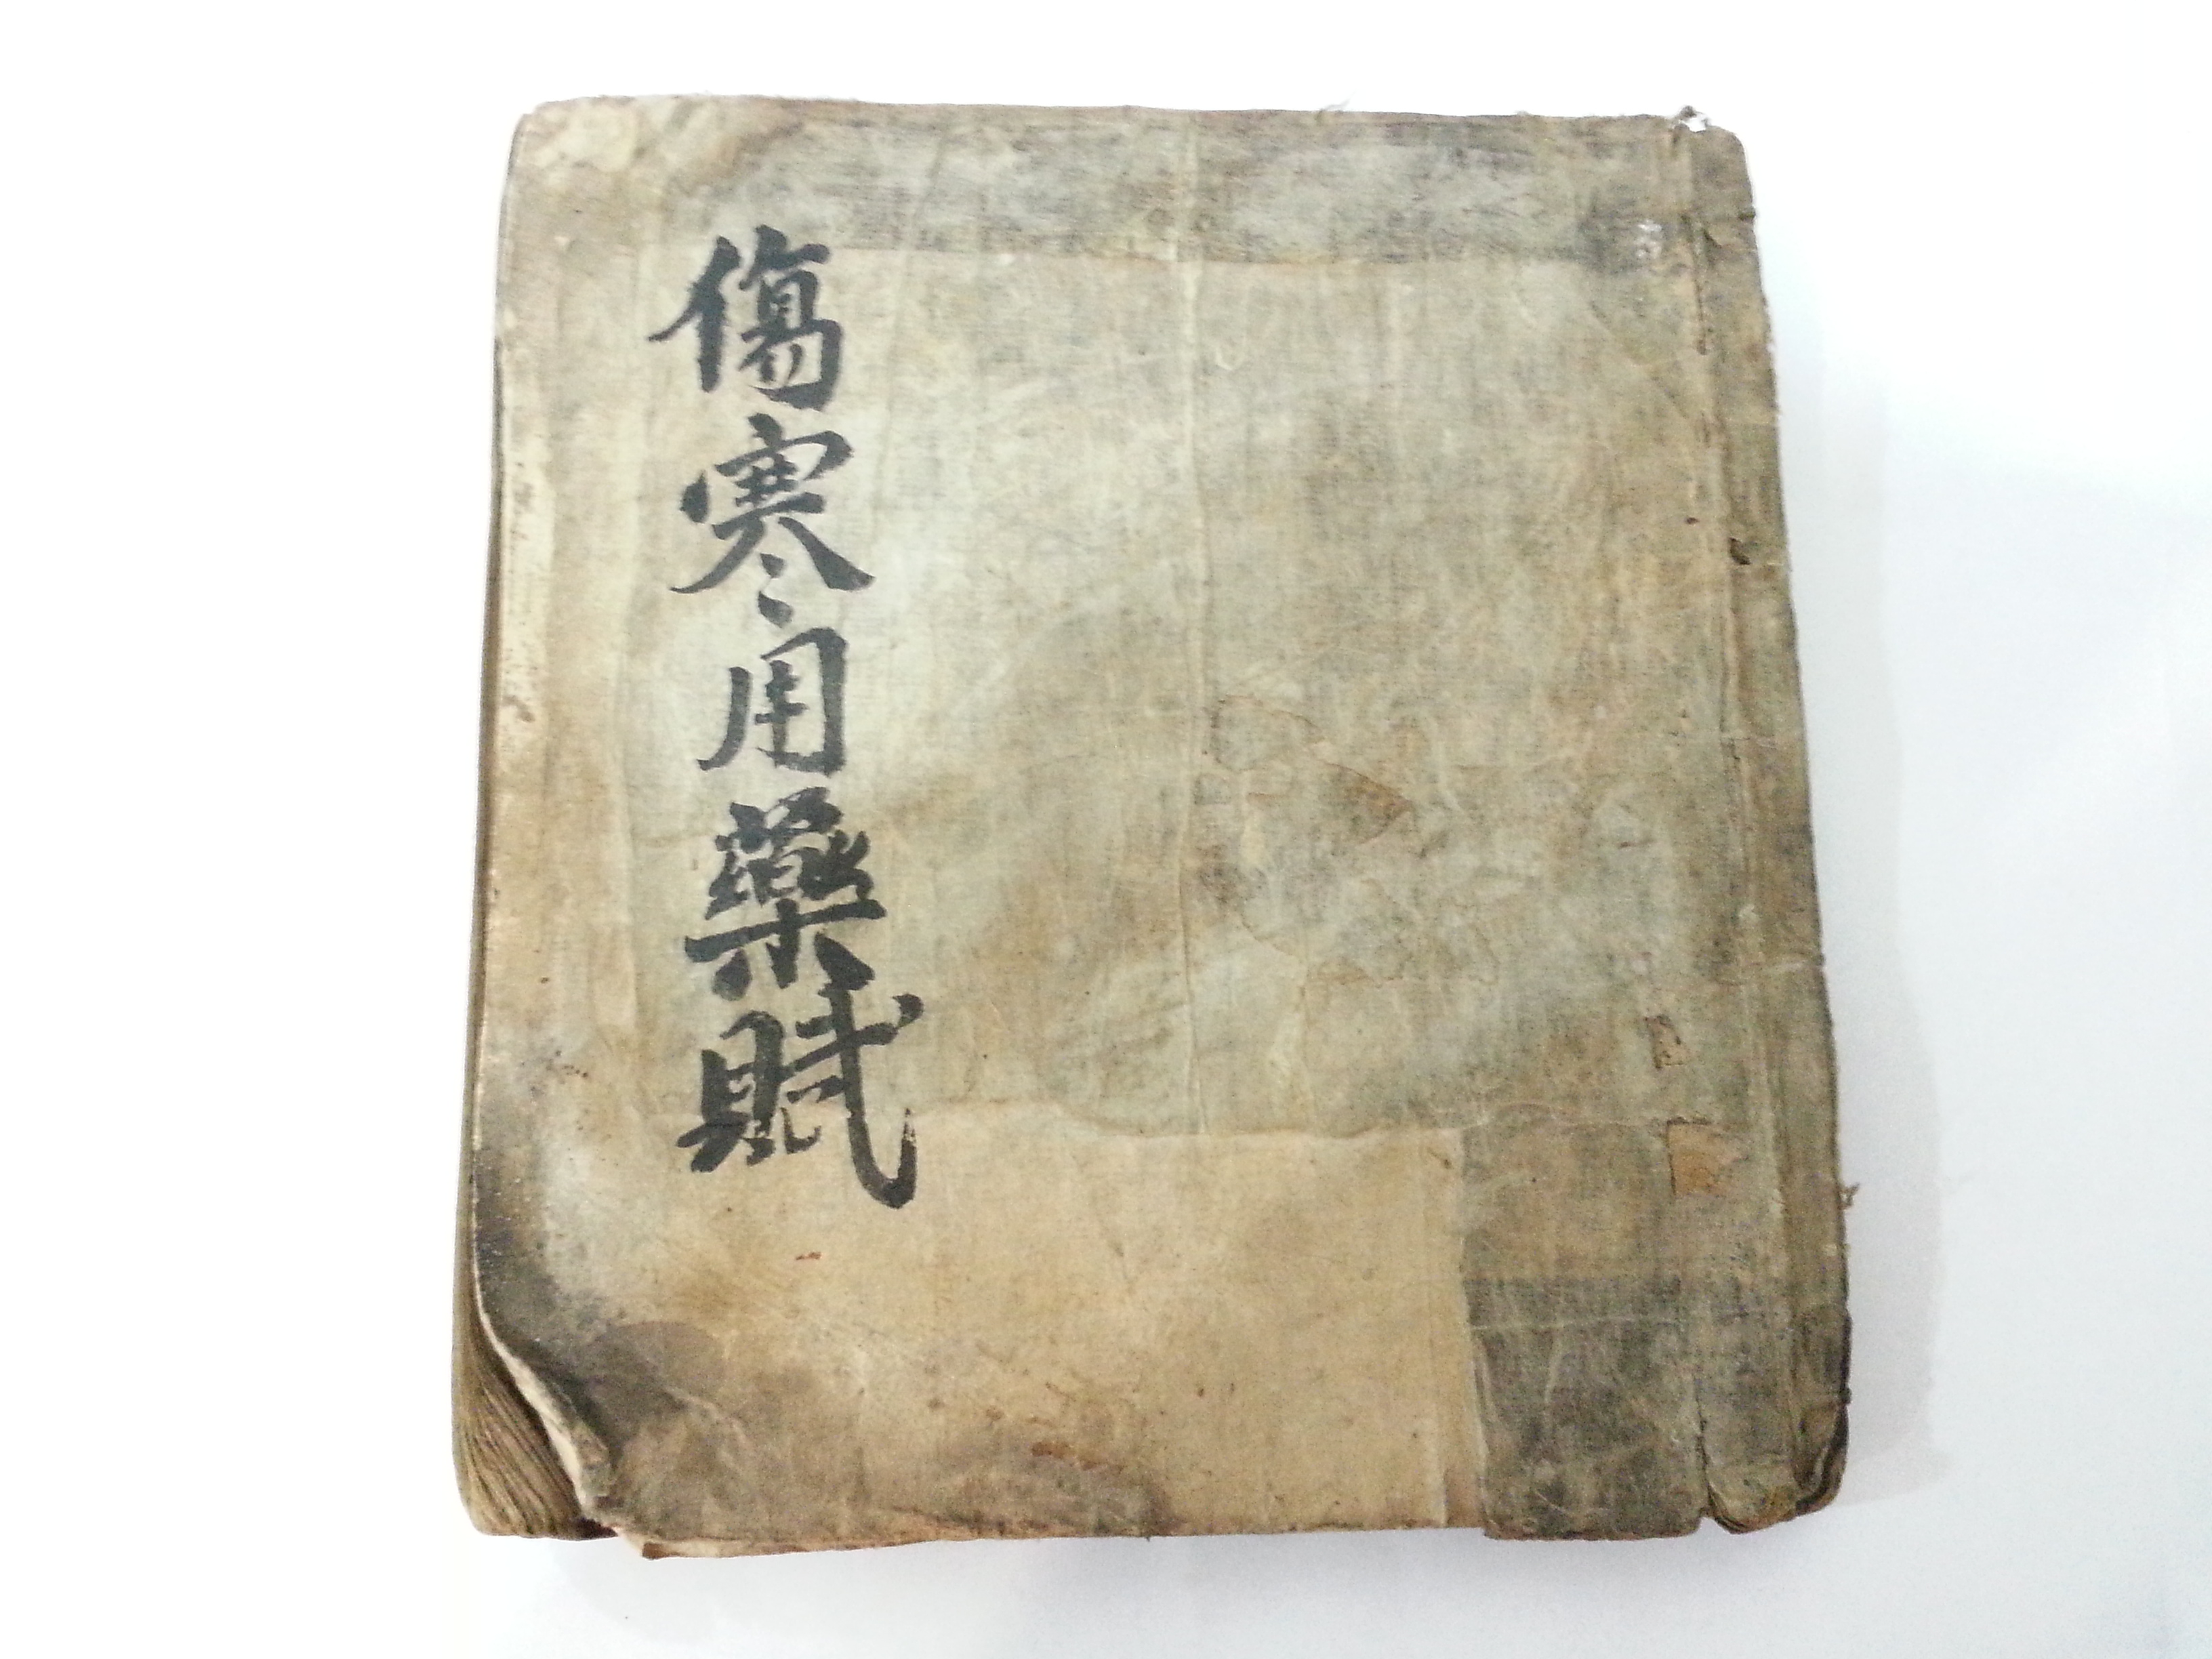 傷寒用藥賦